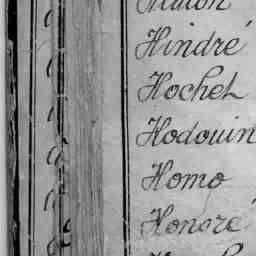 Hindré
Hochet
Hodouin
Homo
Honoré